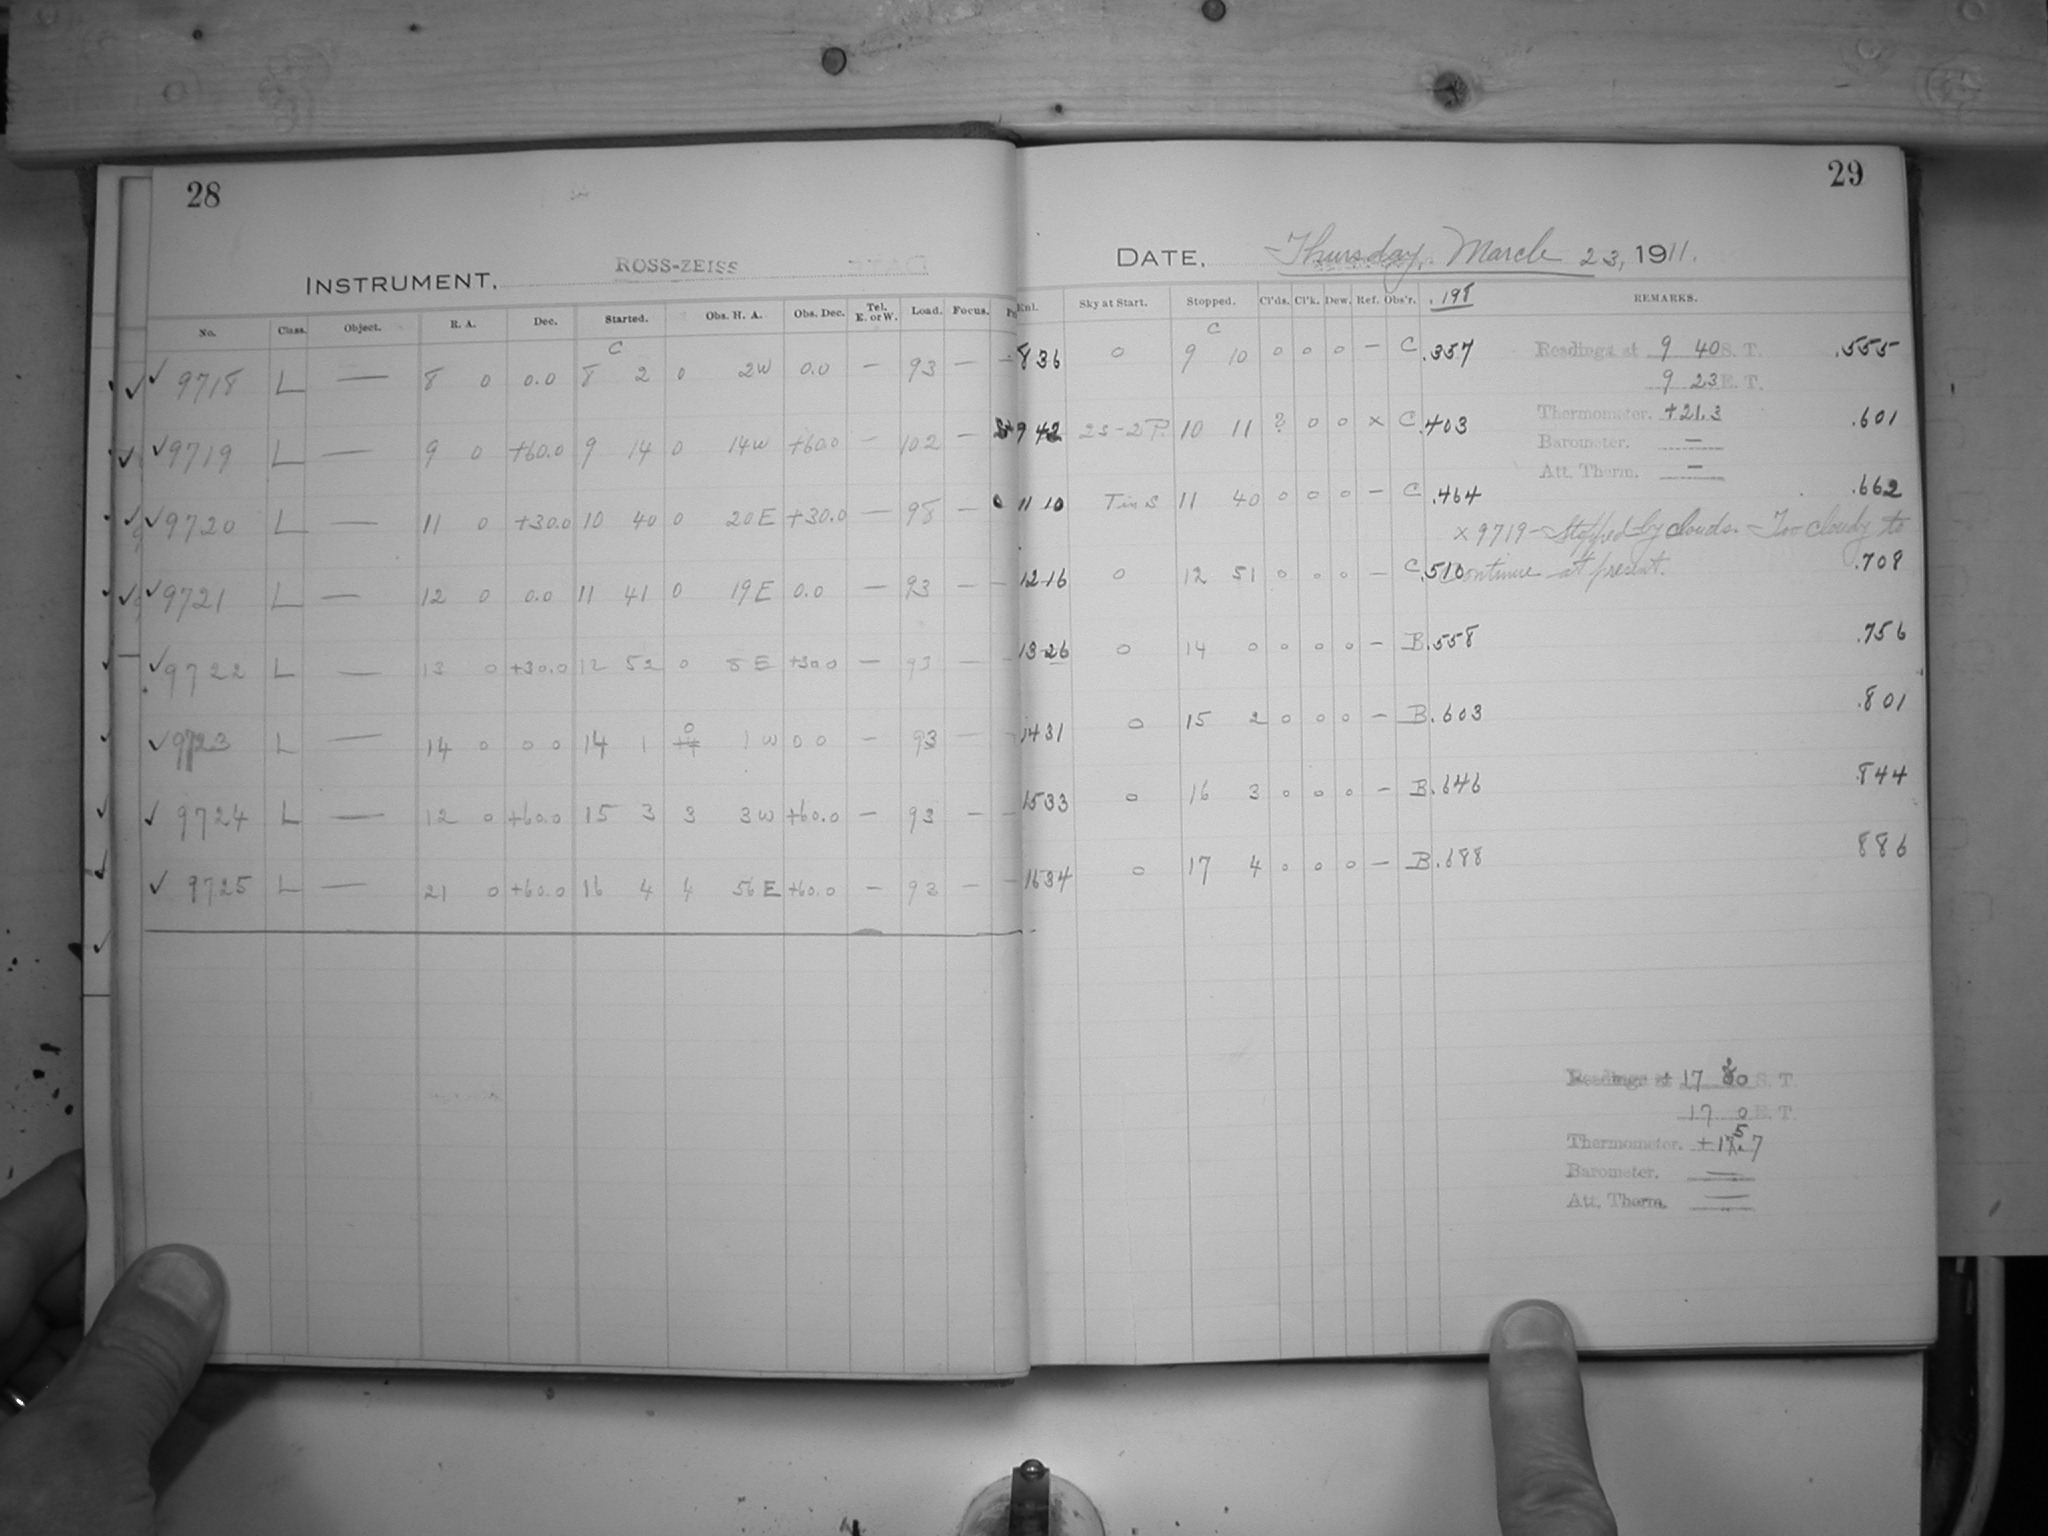 28
INSTRUMENT. ROSS-ZEISS
No. Class. Object. R. A. Dec. Started. Obs. H. A. Obs. Dec. Tel. E. or W. Load. Focus.
✓ 9718 L — 8 0 0.0 8 C 2 0 2W 0.0 — 93 —
✓ 9719 L — 9 0 +60.0 9 14 0 14W +60.0 — 102 —
✓ 9720 L — 11 0 +30.0 10 40 0 20E +30.0 — 98 —
✓ 9721 L — 12 0 0.0 11 41 0 19E 0.0 — 93 —
✓ 9722 L — 13 0 +30.0 12 52 0 8E +30.0 — 93 —
✓ 9723 L — 14 0 0 0 14 1 0 1W 0 0 — 93 —
✓ 9724 L — 12 0 +60.0 15 3 3 3W +60.0 — 93 —
✓ 9725 L — 21 0 +60.0 16 4 4 56E +60.0 — 93 —
29
DATE. Thursday, March 23, 1911.
Enl. Sky at Start. Stopped. Cl'ds. Cl'k. Dew. Ref. Obs'r. .198 REMARKS.
8 36 0 9 C 10 0 0 0 — C .357 Readings at 9 40 S. T. .555
9 23 E. T.
9 42 2S-2P. 10 11 ? 0 0 x C .403 Thermometer. +21.3 .601
Barometer. —
Att. Therm. —
11 10 Tin S 11 40 0 0 0 — C .464 .662
x 9719 - Stopped by clouds. - Too cloudy to
12 16 0 12 51 0 0 0 — C .510 continue at present. .708
13 26 0 14 0 0 0 0 — B .558 .756
14 31 0 15 2 0 0 0 — B .603 .801
15 33 0 16 3 0 0 0 — B .646 .844
16 34 0 17 4 0 0 0 — B .688 886
Readings at 17 20 S. T.
17 0 E. T.
Thermometer. +15.7
Barometer. —
Att. Therm. —